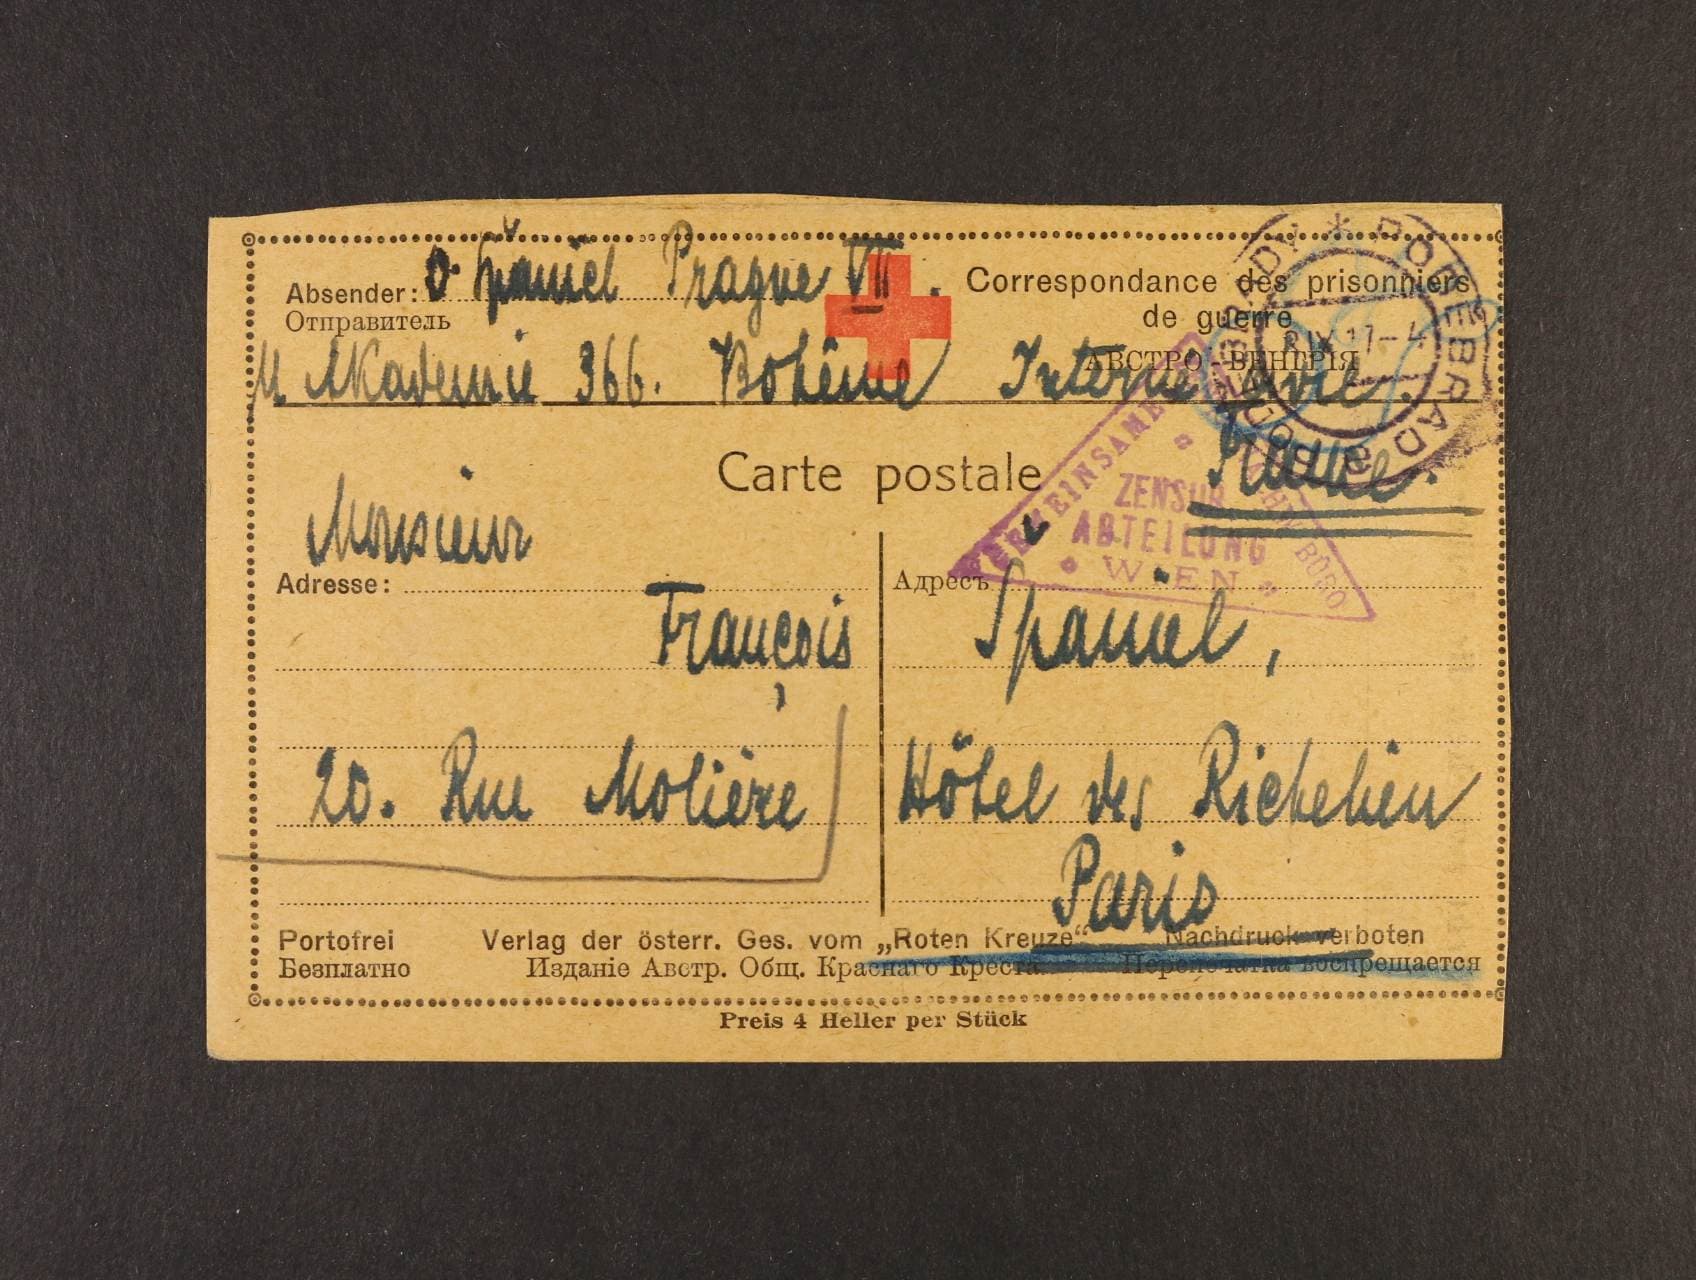 Absender: O. Španiel Prague VII.
Отправитель
U Akademie 366. Bohême
Correspondance des prisonniers
de guerre
АВСТРО-ВЕНГРІЯ
Interné civil.
France.
PODĚBRADY * PODĚBRADY
IX 17-4
Carte postale
GEMEINSAMES
ZENTRALNACHWEISEBÜRO
ZENSUR
ABTEILUNG
WIEN
Monsieur
Adresse:
Адресъ
François Španiel,
20. Rue Molière Hôtel des Richelieu
Paris
Portofrei Verlag der österr. Ges. vom „Roten Kreuze“ Nachdruck verboten
Безплатно Изданіе Австр. Общ. Краснаго Креста. Перепечатка воспрещается
Preis 4 Heller per Stück